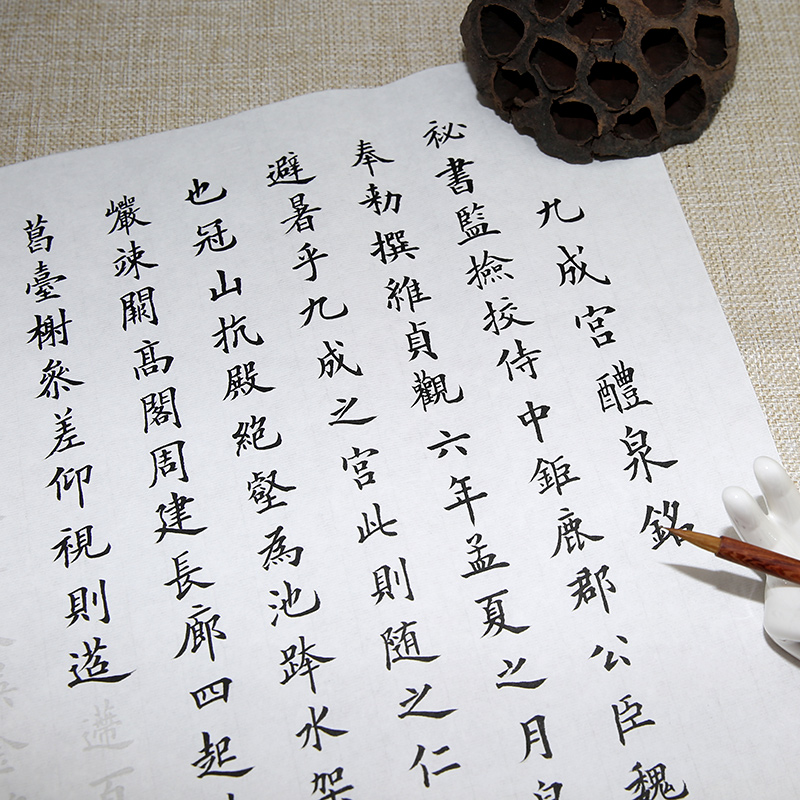 九成宮醴泉銘
祕書監撿挍侍中鉅鹿郡公臣魏
奉勅撰維貞觀六年孟夏之月
避暑乎九成之宮此則随之仁
也冠山抗殿絶壑為池跨水架
巗竦闕髙閣周建長廊四起
葛臺榭叅差仰視則迢